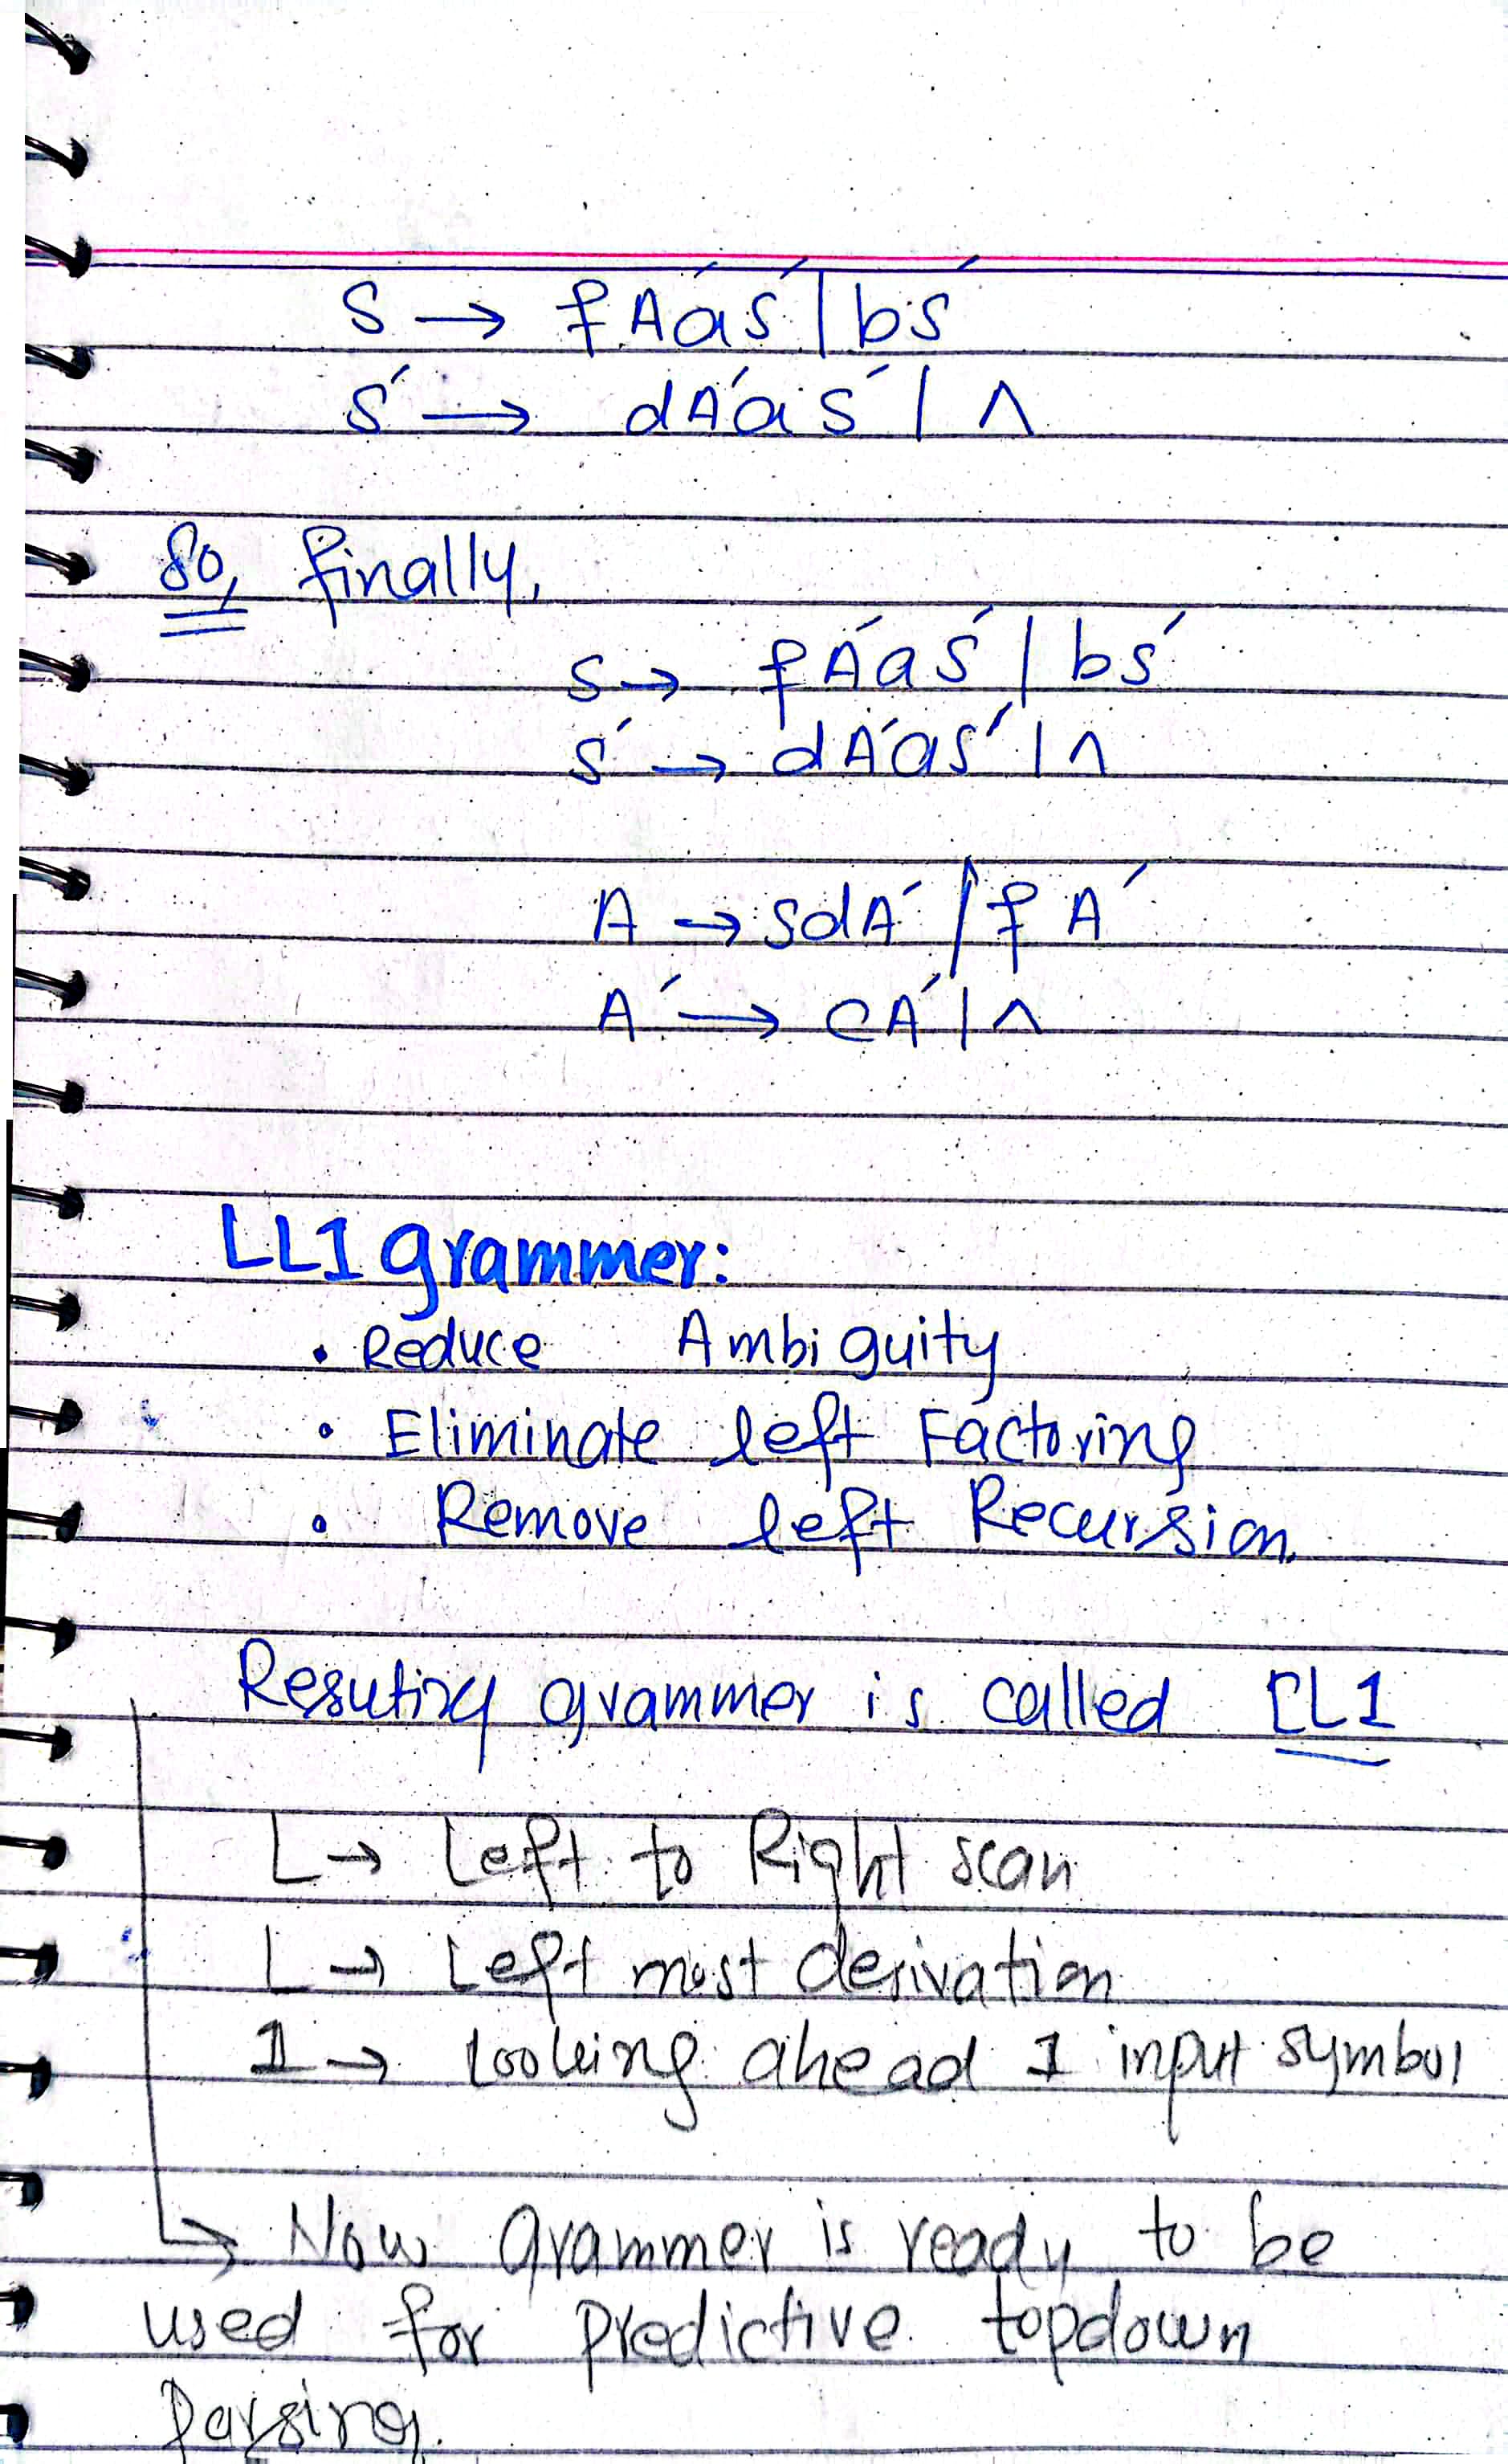 S → fA'aS' | bS'
S' → dA'aS' | ^
So, finally,
S → fA'aS' | bS'
S' → dA'aS' | ^
A → SdA' | fA'
A' → cA' | ^
LL1 grammer:
• Reduce Ambiguity
• Eliminate left Factoring
• Remove left Recursion.
Resuting grammer is called LL1
L → Left to Right scan
L → Left most derivation
1 → Looking ahead 1 input symbol
↳ Now grammer is ready to be
used for predictive topdown
parsing.